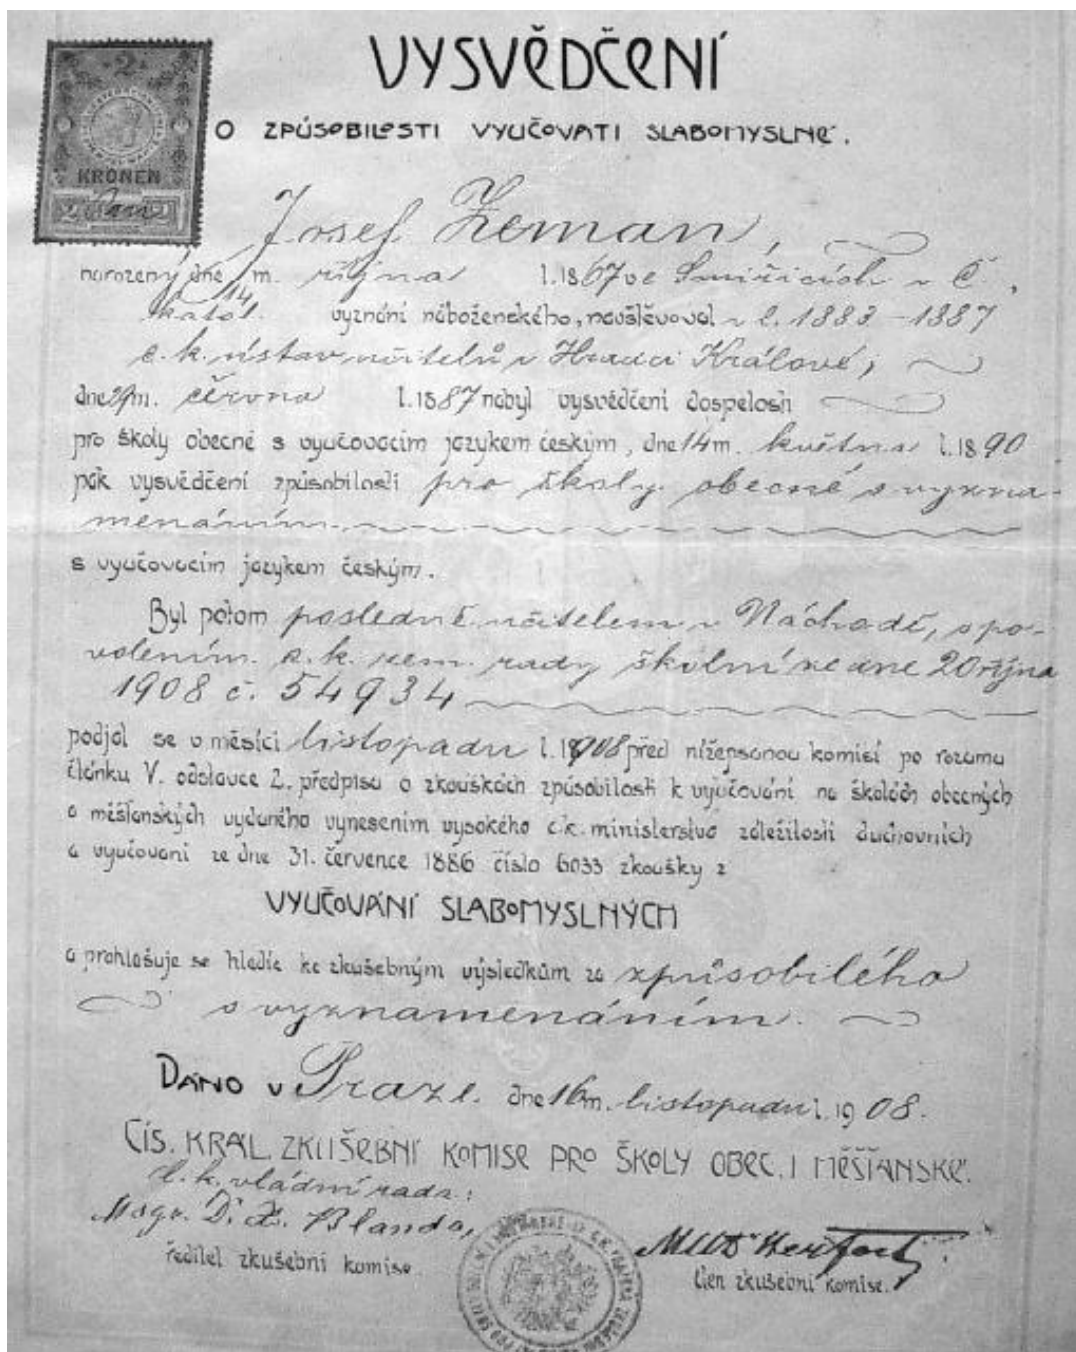 VYSVĚDČENÍ
O ZPŮSOBILOSTI VYUČOVATI SLABOMYSLNÉ.
2
KRONEN
2 2
Josef Zeman,
narozený dne 14 m. října l. 1867 ve Smiřicích v Č.,
katol. vyznání náboženského, navštěvoval v l. 1883 – 1887
c. k. ústav učitelů v Hradci Králové,
dne 29 m. června l. 1887 nabyl vysvědčení dospělosti
pro školy obecné s vyučovacím jazykem českým, dne 14 m. května l. 1890
pak vysvědčení způsobilosti pro školy obecné s vyzna-
menáním
s vyučovacím jazykem českým.
Byl potom posledně učitelem v Náchodě, s po-
volením c. k. zem. rady školní ze dne 20 října
1908 č. 54934
podjal se v měsíci listopadu l. 1908 před nížepsanou komisí po rozumu
článku V. odstavce 2. předpisu o zkouškách způsobilosti k vyučování na školách obecných
a měšťanských vydaného vynesením vysokého c.k. ministerstva záležitostí duchovních
a vyučování ze dne 31. července 1886 číslo 6033 zkoušky z
VYUČOVÁNÍ SLABOMYSLNÝCH
a prohlašuje se hledíc ke zkušebným výsledkům za způsobilého
s vyznamenáním.
DÁNO V Praze. dne 16 m. listopadu l. 1908.
CÍS. KRÁL. ZKUŠEBNÍ KOMISE PRO ŠKOLY OBEC. I MĚŠŤANSKÉ.
C. k. vládní rada:
Blanda,
ředitel zkušební komise.
MUDr Herfort
člen zkušební komise.